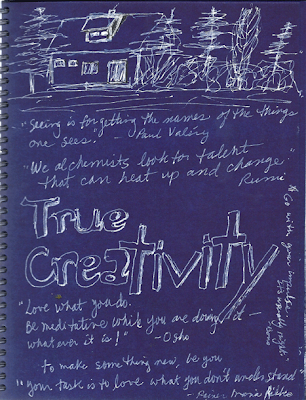 "Seeing is forgetting the names of the things
one sees." Paul Valéry
"We alchemists look for talent
that can heat up and change."
Rumi
True
Creativity
"Love what you do.
Be meditative while you are doing it —
whatever it is!" - Osho
to make something new, be you
"your task is to love what you don't understand"
- Rainer Maria Rilke
Go with your